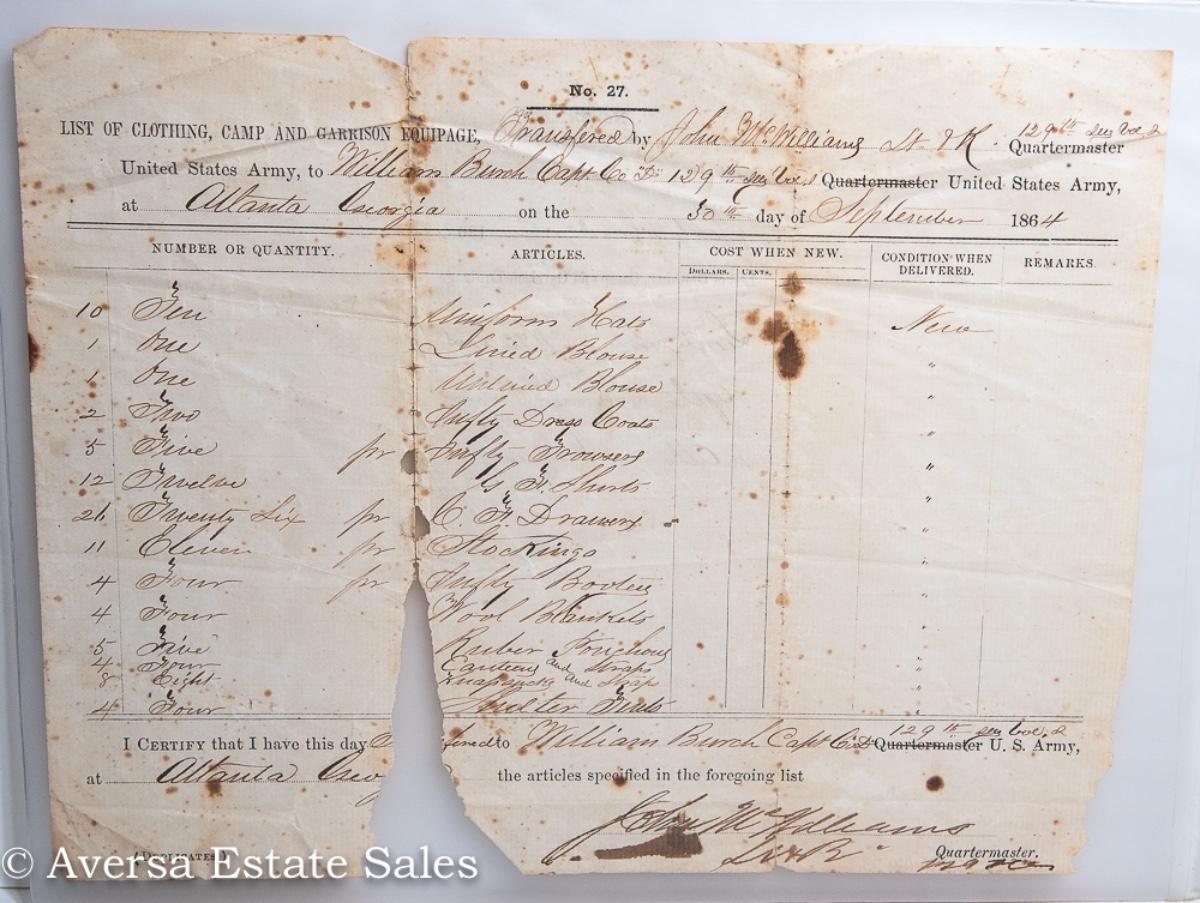 No. 27.
LIST OF CLOTHING, CAMP AND GARRISON EQUIPAGE, Transfered by John McWilliams Lt & R. 129th Quartermaster
United States Army, to William Burch Capt. Co "D" 129th Quartermaster United States Army,
at Atlanta Georgia on the 30th day of September 1864
NUMBER OR QUANTITY. ARTICLES. COST WHEN NEW. CONDITION WHEN DELIVERED. REMARKS.
DOLLARS. CENTS.
10 Ten Uniform Hats New
1 One Lined Blouse "
1 One Unlined Blouse "
2 Two Infty Dress Coats "
5 Five pr Infty Trowsers "
12 Twelve G. F. Shirts "
26 Twenty Six pr C. F. Drawers "
11 Eleven pr Stockings "
4 Four pr Infty Bootees "
4 Four Wool Blankets "
5 Five Ruber Ponchous "
4 Four Canteens and Straps "
8 Eight Knapsacks and Straps "
4 Four Shelter Tents "
I CERTIFY that I have this day to William Burch Capt Co D 129th Quartermaster U. S. Army,
at Atlanta the articles specified in the foregoing list
John McWilliams
Quartermaster.
[DUPLICATES.]
© Aversa Estate Sales